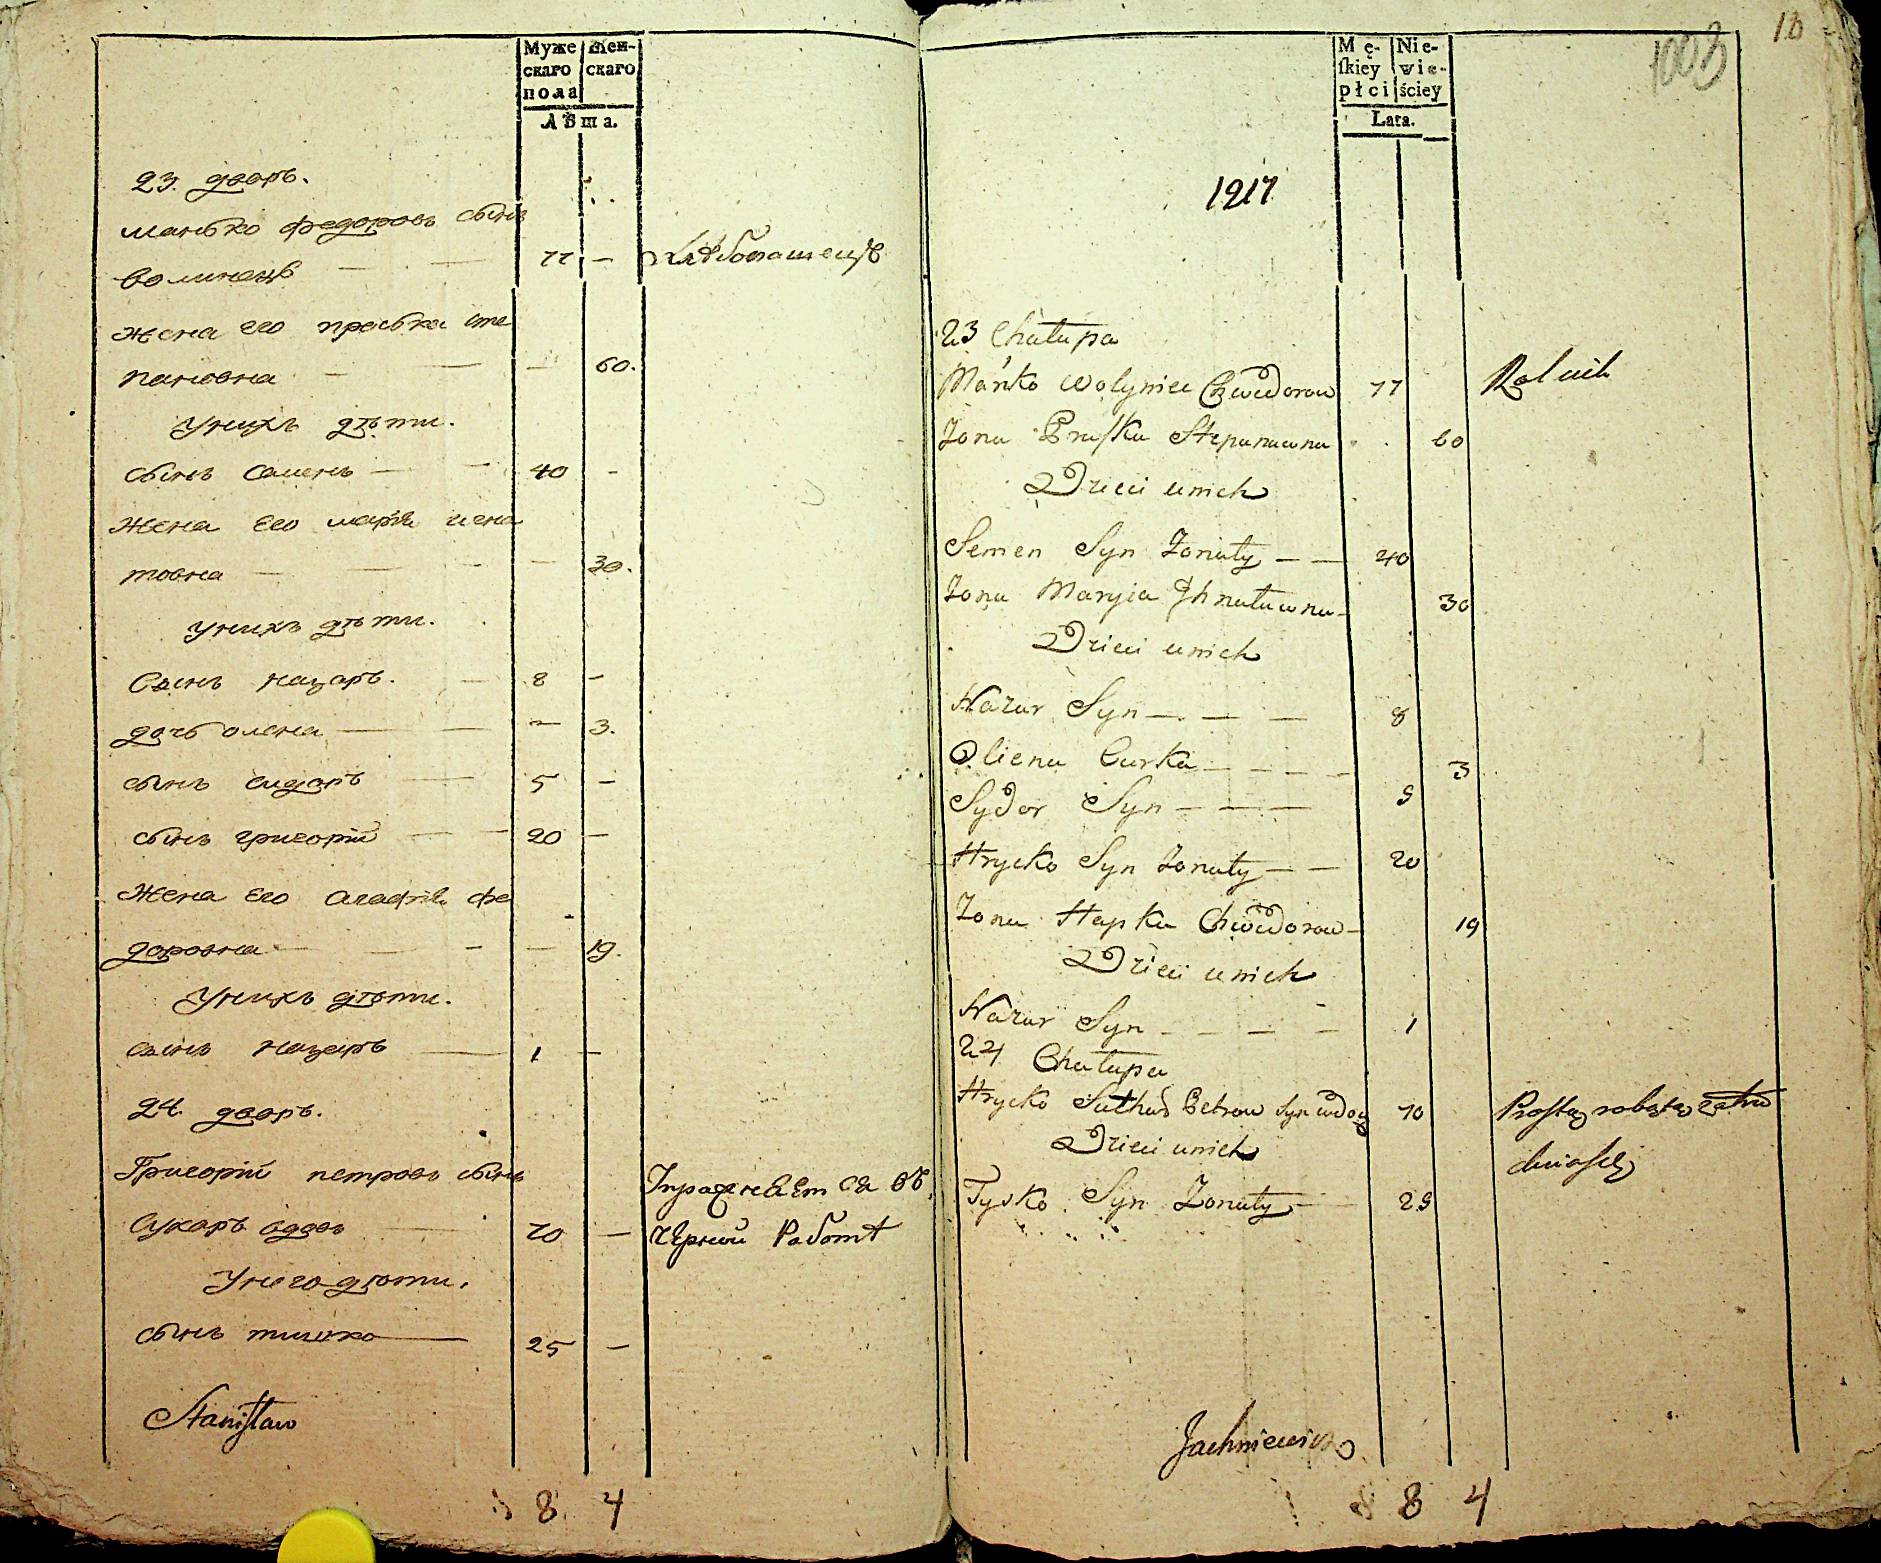 Муже
скаго
пола
Жен-
скаго
Лѣта.
23. дворъ.
манько федоровъ сынъ
волинецъ — — 77 — хлѣбопашецъ
жена его праська сте
пановна — — — 60.
Унихъ дѣти.
сынъ семенъ — — 40 -
жена его марія игна
товна — — - — 30.
унихъ дѣти.
Сынъ назаръ. — 8 -
дочь олена — — — 3.
сынъ сидоръ — 5 -
сынъ григорій — — 20 —
жена его агафія фе
доровна — — - — 19.
Унихъ дѣти.
сынъ назаръ — 1 —
24. дворъ.
Григорій петровъ сынъ
сухаръ вдовъ — 70 —
Упражняетса въ
черной работѣ
Унего дѣти.
сынъ тишко — 25 —
Stanisław
8 4
10
1003
Mę-
skiey
płci
Nie-
wie-
ściey
Lata.
1217
23 Chałupa
Mańko Wołyniec Chwedorow 77 Rolnik
Żona Praska Stepanowna 60
Dzieci unich
Semen Syn Żonaty — — 40
Żona Maryia Ihnatowna 30
Dzieci unich
Nazar Syn — — — 8
Oliena Curka — — — — 3
Sydor Syn — — — 5
Hrycko Syn Żonaty — — 20
Żona Hapka Chwedorow — 19
Dzieci unich
Nazar Syn — — — — 1
24 Chałupa
Hrycko Petrow Syn wdowy 70 Prostą robotą zatru
dniosię
Dzieci unich
Tysko Syn Żonaty — 25
Jachniewicz
8 4